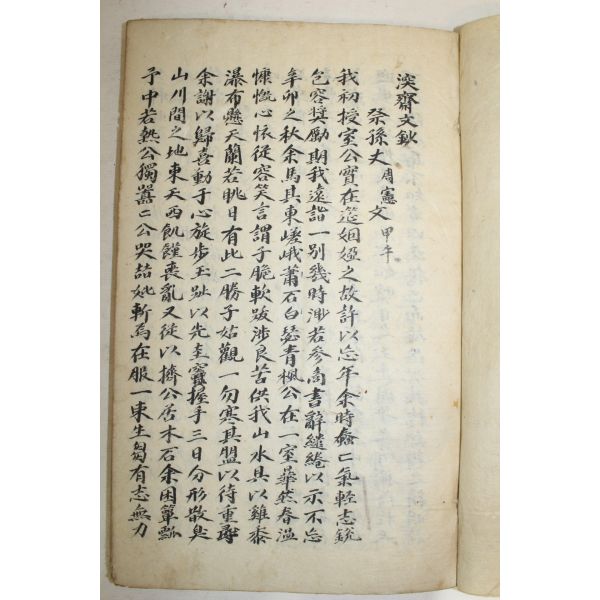 溪齋文鈔
祭孫丈周憲文 甲午
我初授室公實在筵姻婭之故許以忘年余時蠢〻氣輕志銳
包容奬勵期我遠詣一別幾時渺若參商書辭繾綣以示不忘
辛卯之秋余馬其東嵯峨蕭石白瑟青楓公在一室藹然春溫
慷慨心懷從容笑言謂子脆軟跋涉良苦供我山水具以雞黍
瀑布懸天蘭若眺日有此二勝子姑觀一勿寒其盟以待重尋
余謝以歸喜動于心旋步玉趾以先圭竇握手三日分形散臭
山川間之地東天西飢饉喪亂又從以擠公居木石余困簞瓢
予中若熱公獨囂〻公哭喆妣斬焉在服一束生芻有志無力